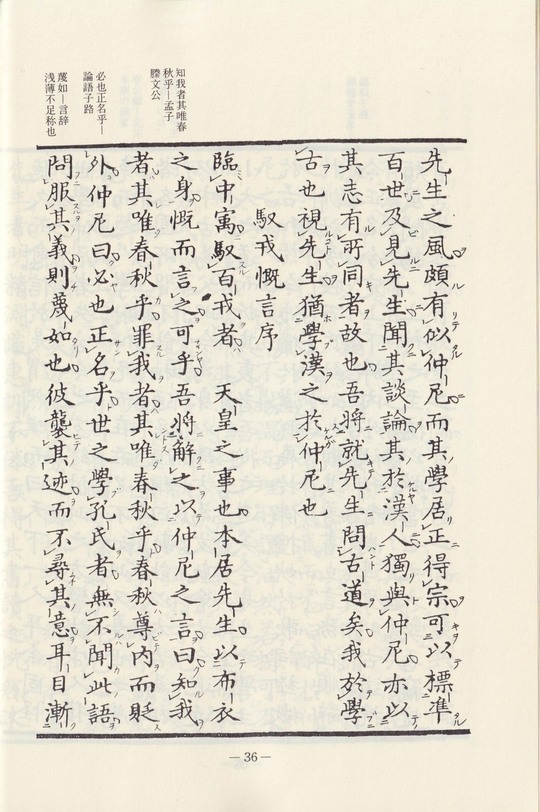 知我者其唯春
秋乎―孟子
滕文公
必也正名乎―
論語子路
蔑如―言辞
浅薄不足称也
先生之風頗有似仲尼而其學居正得宗可以標準
百世及見先生聞其談論其於漢人獨與仲尼亦以
其志有所同者故也吾將就先生問古道矣我於學
古也視先生猶學漢之於仲尼也
馭戎慨言序
臨中寓馭百戎者 天皇之事也本居先生以布衣
之身慨而言之可乎吾將解之以仲尼之言曰知我
者其唯春秋乎罪我者其唯春秋乎春秋尊内而貶
外仲尼曰必也正名乎世之學孔氏者無不聞此語
問服其義則蔑如也彼襲其迹而不尋其意耳目漸
― 36 ―